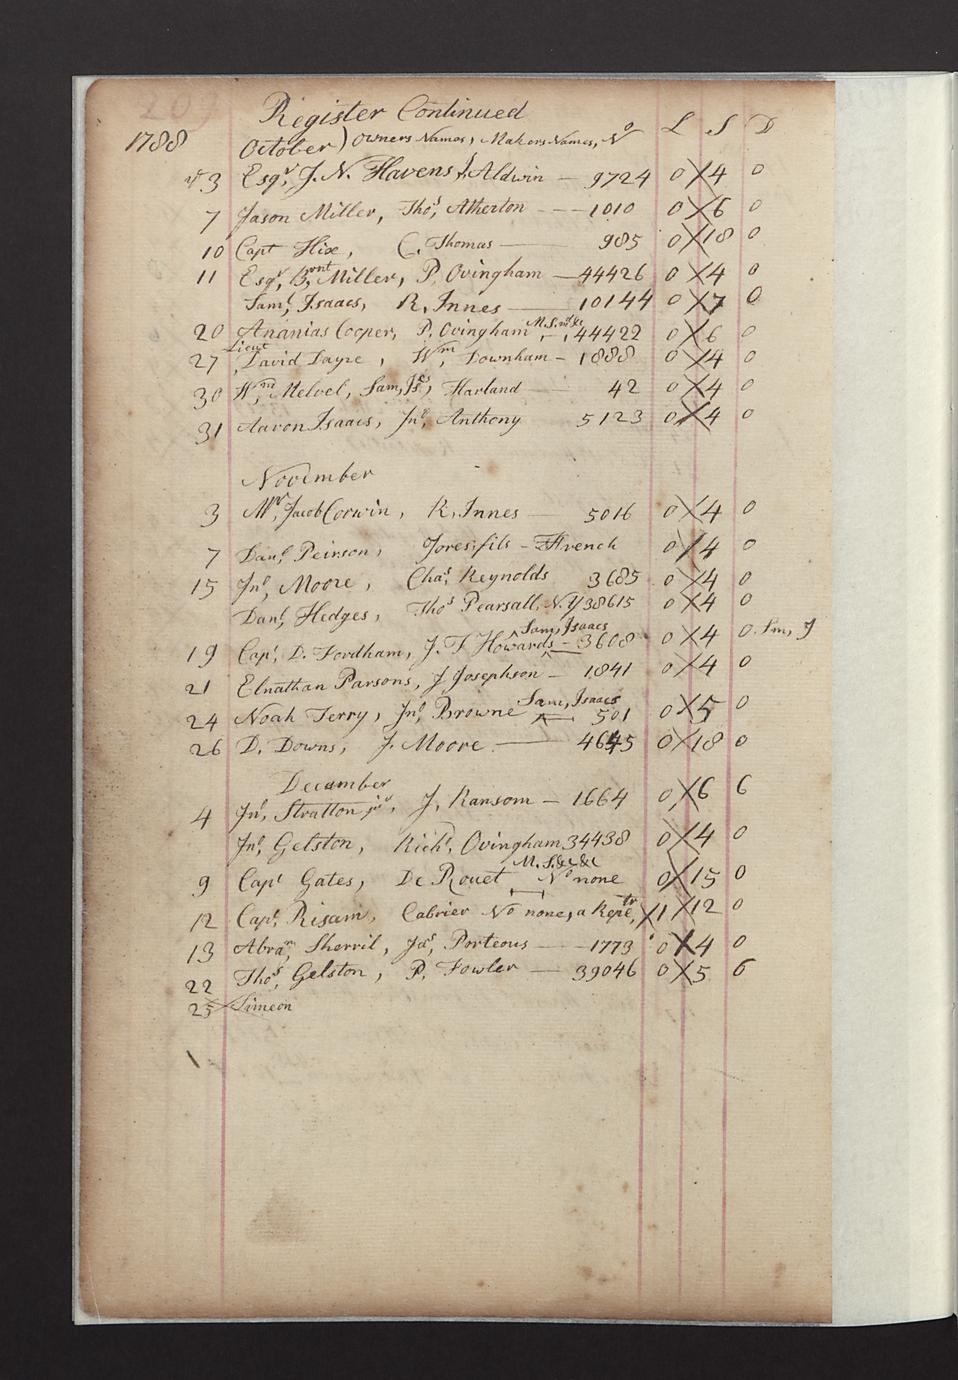 209
Register Continued
1788 October) Owners Names, Makers Names, No L S D
3 Esqr, J. N. Havens, Aldwin — 9724 0 4 0
7 Jason Miller, Thos, Atherton — 1010 0 6 0
10 Capt Hix, C. Thomas — 985 0 18 0
11 Esqr, Bnt, Miller, P. Ovingham — 44426 0 4 0
Saml, Isaacs, R. Innes — 10144 0 7 0
20 Ananias Cooper, P. Ovingham M.S.&c&c 44422 0 6 0
27 Lieut David Sayre, Wm, Downham — 1888 0 4 0
30 Wm, Melvel, Sam, Is, Harland — 42 0 4 0
31 Aaron Isaacs, Jno, Anthony 5123 0 4 0
November
3 Mr, Jacob Corwin, R. Innes — 5016 0 4 0
7 Danl, Peirson, Jores, fils — French 0 4 0
15 Jno, Moore, Chas, Reynolds 3685 0 4 0
Danl, Hedges, Thos Pearsall, N.Y 38615 0 4 0
Sam, Isaacs
19 Capt, D. Fordham, J. T Howards — 3608 0 4 0 Sm, J
21 Elnathan Parsons, J Josephson — 1841 0 4 0
Sam, Isaacs
24 Noah Terry, Jno, Browne 501 0 5 0
26 D. Downs, J. Moore — 4645 0 18 0
December
4 Jno, Stratton jur, J, Ransom — 1664 0 6 6
Jno, Gelston, Richd, Ovingham 34438 0 4 0
M. S.&c&c
9 Capt Gates, De Rouet No none 0 15 0
12 Capt, Risam, Cabrier No none, a Repetr, 1 12 0
13 Abram Sherril, Jas, Porteous — 1773 0 4 0
22 Thos, Gelston, P, Fowler — 39046 0 5 6
25 Simeon